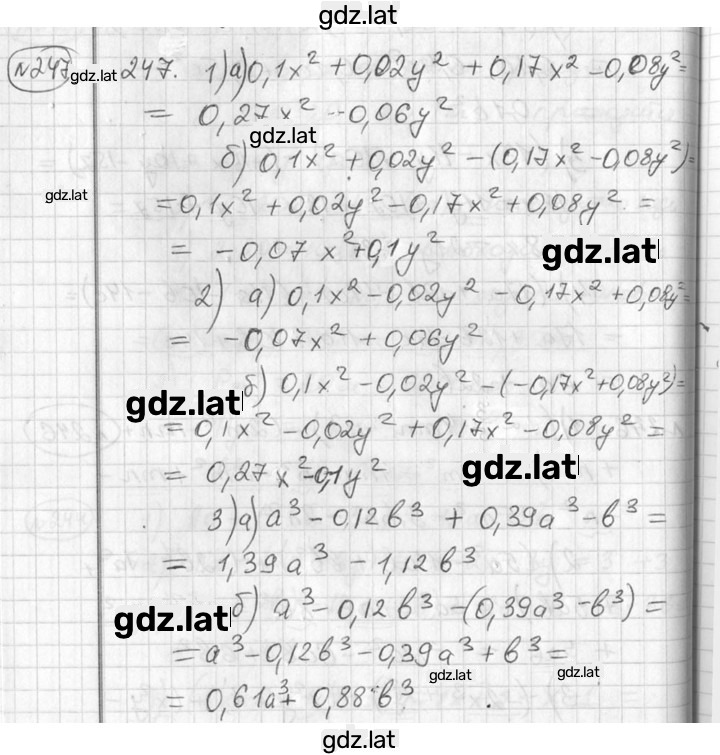 gdz.lat
№247 gdz.lat 247. 1) а) 0,1x² + 0,02y² + 0,17x² - 0,08y² =
= 0,27x² - 0,06y²
gdz.lat
б) 0,1x² + 0,02y² - (0,17x² - 0,08y²) =
gdz.lat
= 0,1x² + 0,02y² - 0,17x² + 0,08y² =
= -0,07x² + 0,1y²
gdz.lat
2) а) 0,1x² - 0,02y² - 0,17x² + 0,08y² =
= -0,07x² + 0,06y²
б) 0,1x² - 0,02y² - (-0,17x² + 0,08y²) =
gdz.lat
= 0,1x² - 0,02y² + 0,17x² - 0,08y² =
= 0,27x² - 0,1y²
gdz.lat
3) а) a³ - 0,12b³ + 0,39a³ - b³ =
= 1,39a³ - 1,12b³
gdz.lat
б) a³ - 0,12b³ - (0,39a³ - b³) =
= a³ - 0,12b³ - 0,39a³ + b³ =
gdz.lat gdz.lat
= 0,61a³ + 0,88b³
gdz.lat